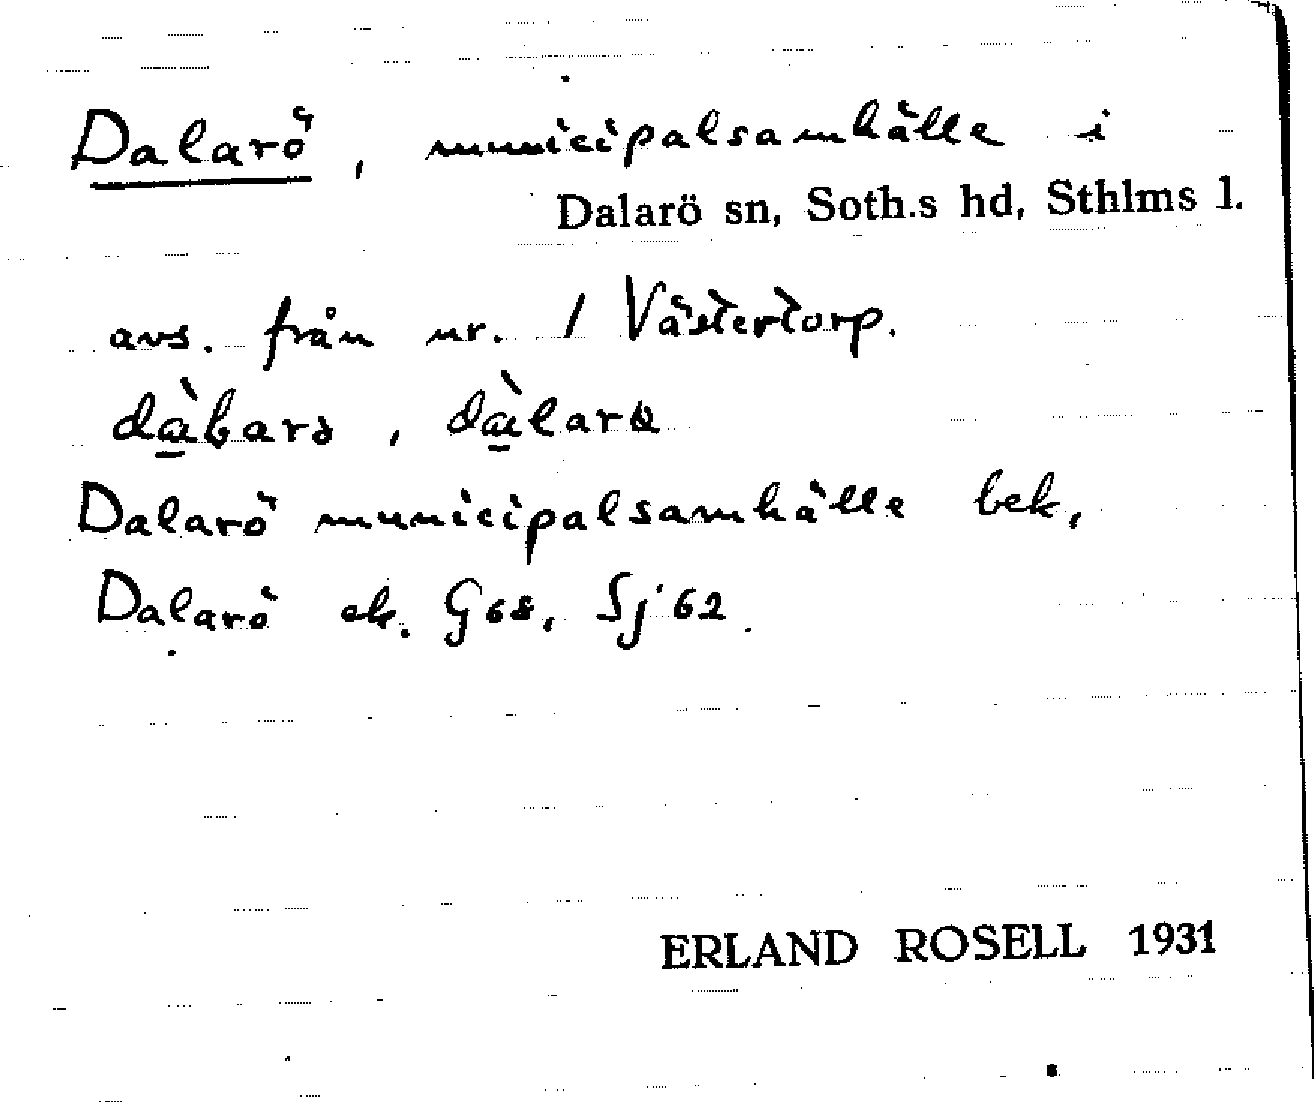 Dalarö, municipalsamhälle i
Dalarö sn, Soth.s hd, Sthlms l.
avs. från nr. 1 Västertorp.
Dalarö municipalsamhälle bek,
Dalarö ek. G68, Sj 62
ERLAND ROSELL 1931